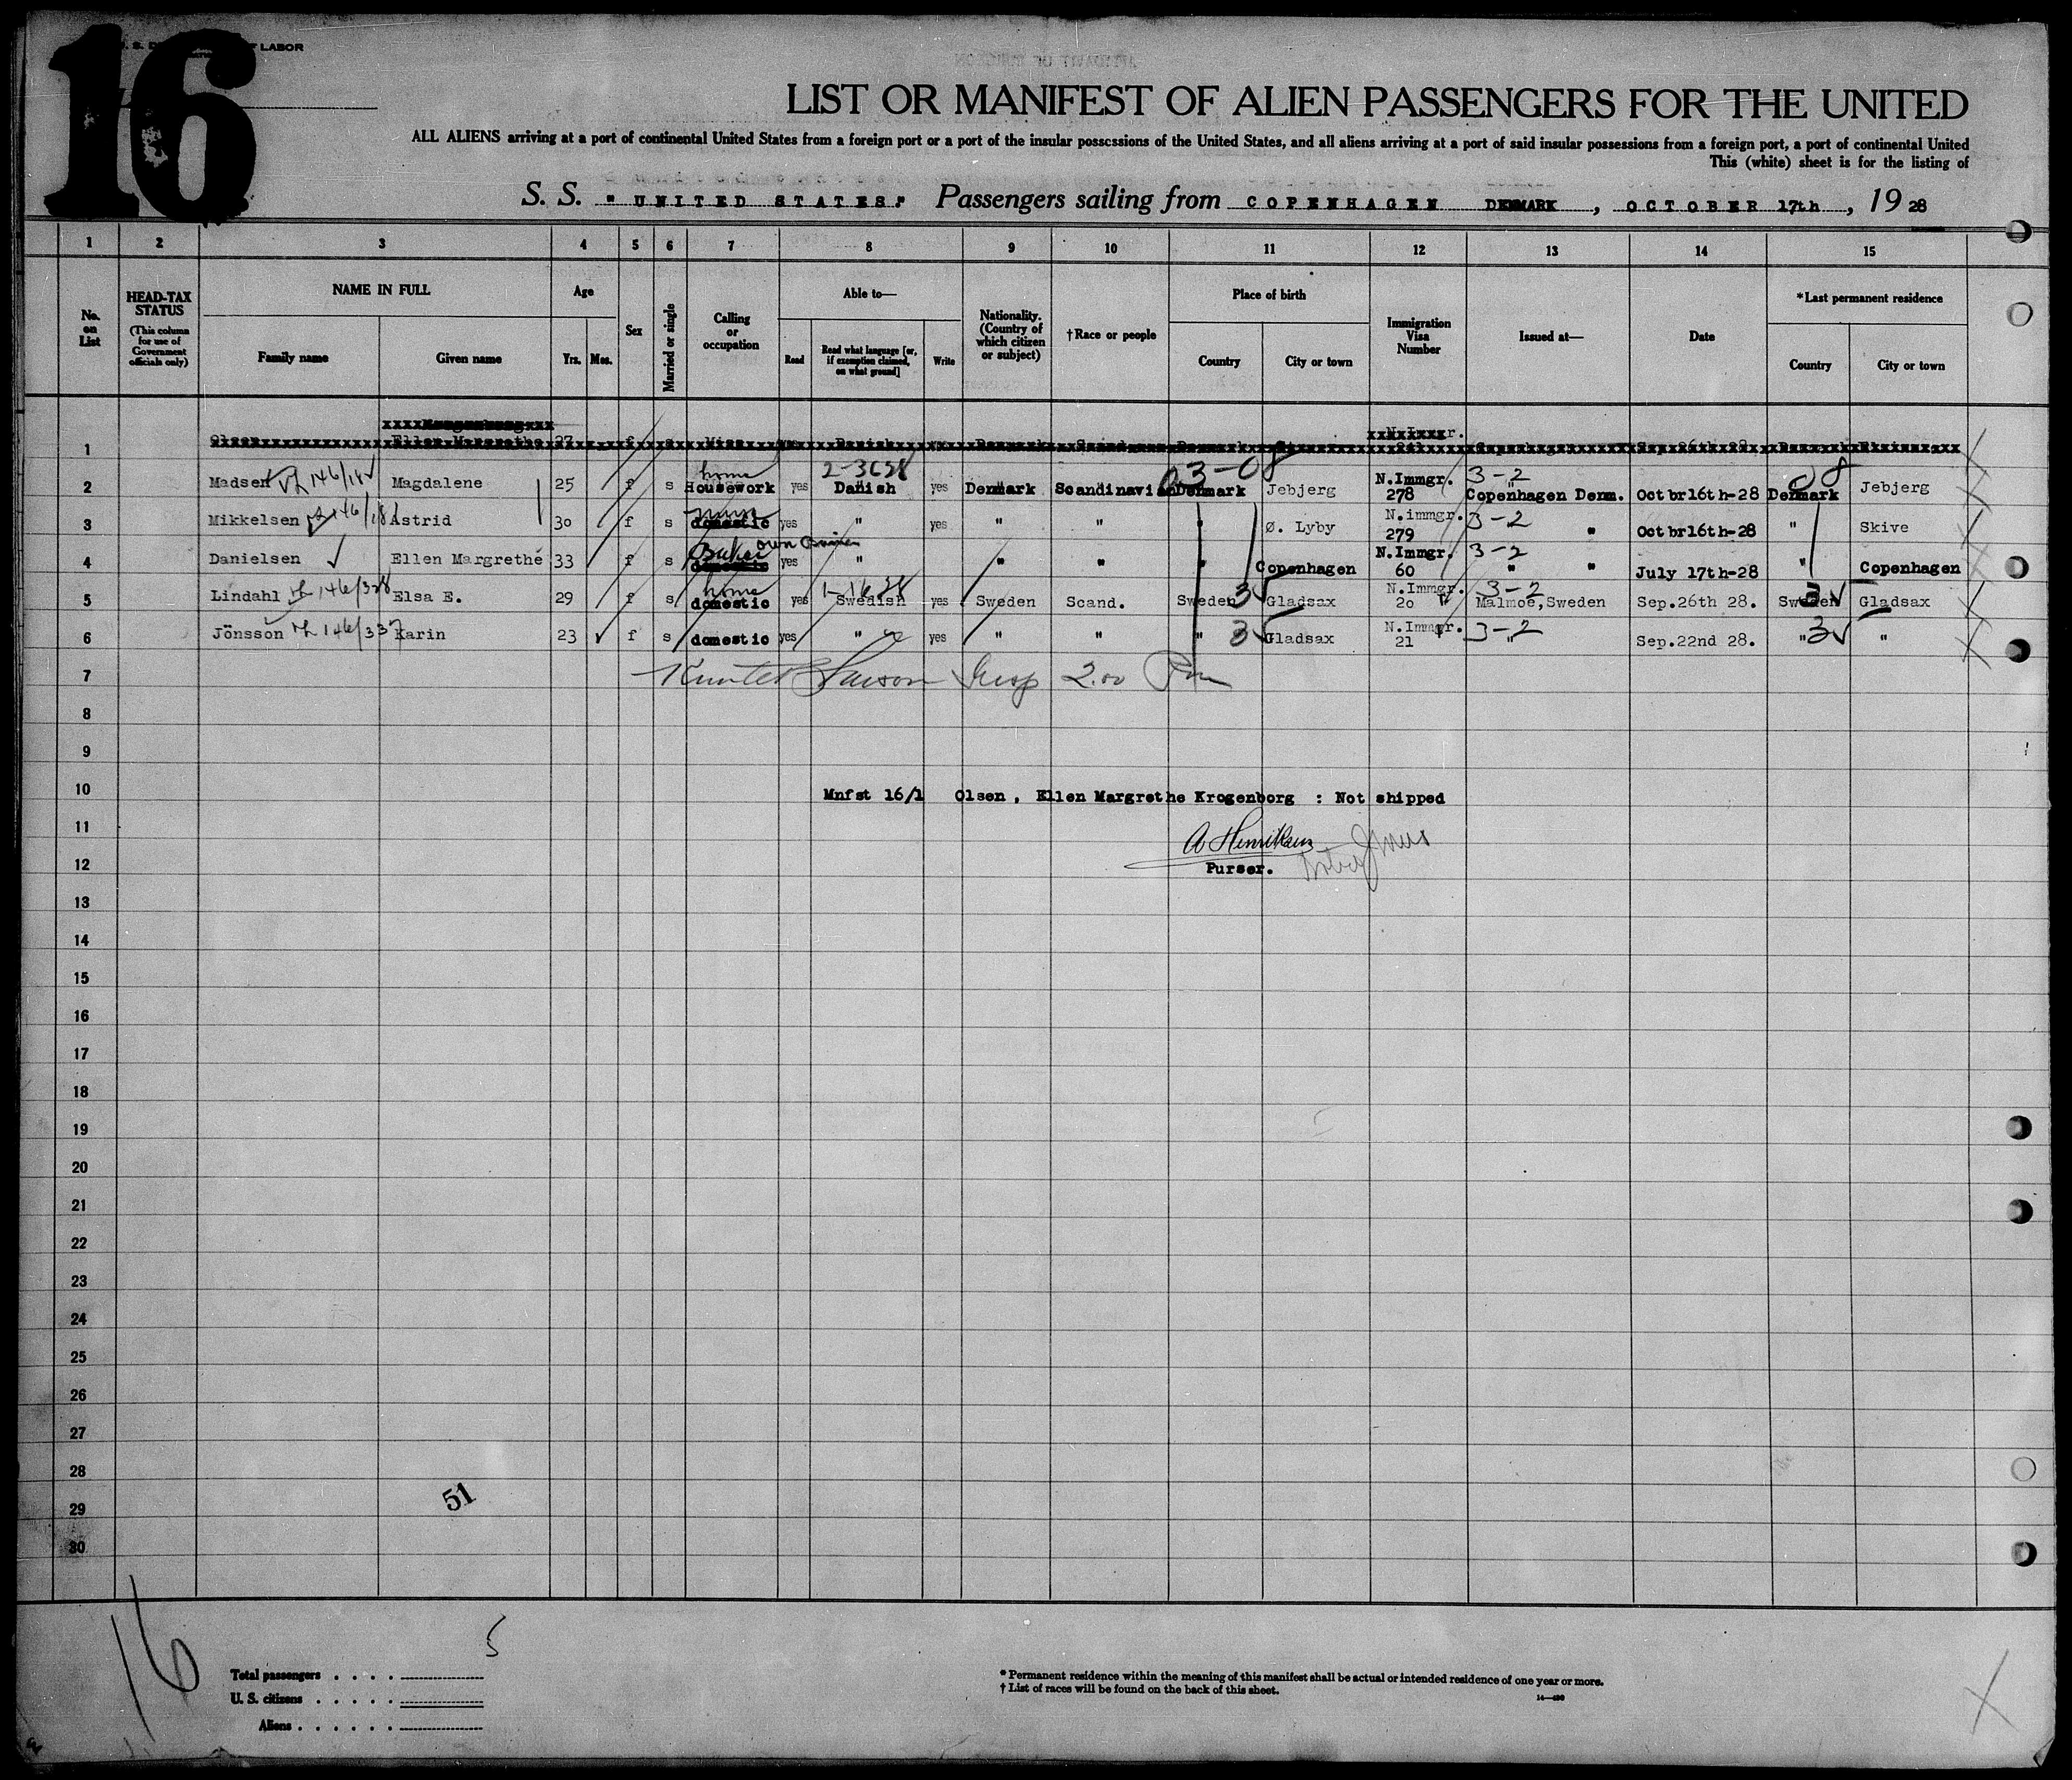 16
LABOR
LIST OR MANIFEST OF ALIEN PASSENGERS FOR THE UNITED
ALL ALIENS arriving at a port of continental United States from a foreign port or a port of the insular possessions of the United States, and all aliens arriving at a port of said insular possessions from a foreign port, a port of continental United
This (white) sheet is for the listing of
S. S. "UNITED STATES" Passengers sailing from COPENHAGEN DENMARK, OCTOBER 17th, 1928
1 2 3 4 5 6 7 8 9 10 11 12 13 14 15
No. on List
HEAD-TAX STATUS (This column for use of Government officials only)
NAME IN FULL
Family name Given name
Age
Yrs. Mos.
Sex
Married or single
Calling or occupation
Able to—
Read Read what language [or, if exemption claimed, on what ground] Write
Nationality. (Country of which citizen or subject)
†Race or people
Place of birth
Country City or town
Immigration Visa Number
Issued at—
Date
*Last permanent residence
Country City or town
1 Ellen Margrethe 27 f s Miss Danish Denmark
home 2-3628 03-08 N.Immgr. 3-2 08
2 Madsen 146/182 Magdalene 25 f s Housework yes Danish yes Denmark Scandinavian Denmark Jebjerg 278 Copenhagen Denm. Octbr16th-28 Denmark Jebjerg
3 Mikkelsen 146/181 Astrid 30 f s domestic yes " yes " " " Ø. Lyby N.immgr. 279 3-2 " Octbr16th-28 " Skive
own
4 Danielsen Ellen Margrethe 33 f s domestic yes " " " " Copenhagen N.Immgr. 60 3-2 " " July 17th-28 " Copenhagen
home 1-1628
5 Lindahl 146/328 Elsa E. 29 f s domestic yes Swedish yes Sweden Scand. Sweden 3 Gladsax N.Immgr. 20 " 3-2 Malmoe, Sweden Sep.26th 28. Sweden 3 Gladsax
6 Jönsson 146/337 Karin 23 f s domestic yes " yes " " " 3 Gladsax N.Immgr. 21 " 3-2 " Sep.22nd 28. " 3 "
7 Insp 2.00 Pm
8
9
10 Mnfst 16/1 Olsen, Ellen Margrethe Krogenborg : Not shipped
11 A Henriksen
12 Purser.
13
14
15
16
17
18
19
20
21
22
23
24
25
26
27
28
29 51
30
16
5
Total passengers . . . .
U. S. citizens . . . . .
Aliens . . . . . .
* Permanent residence within the meaning of this manifest shall be actual or intended residence of one year or more.
† List of races will be found on the back of this sheet.